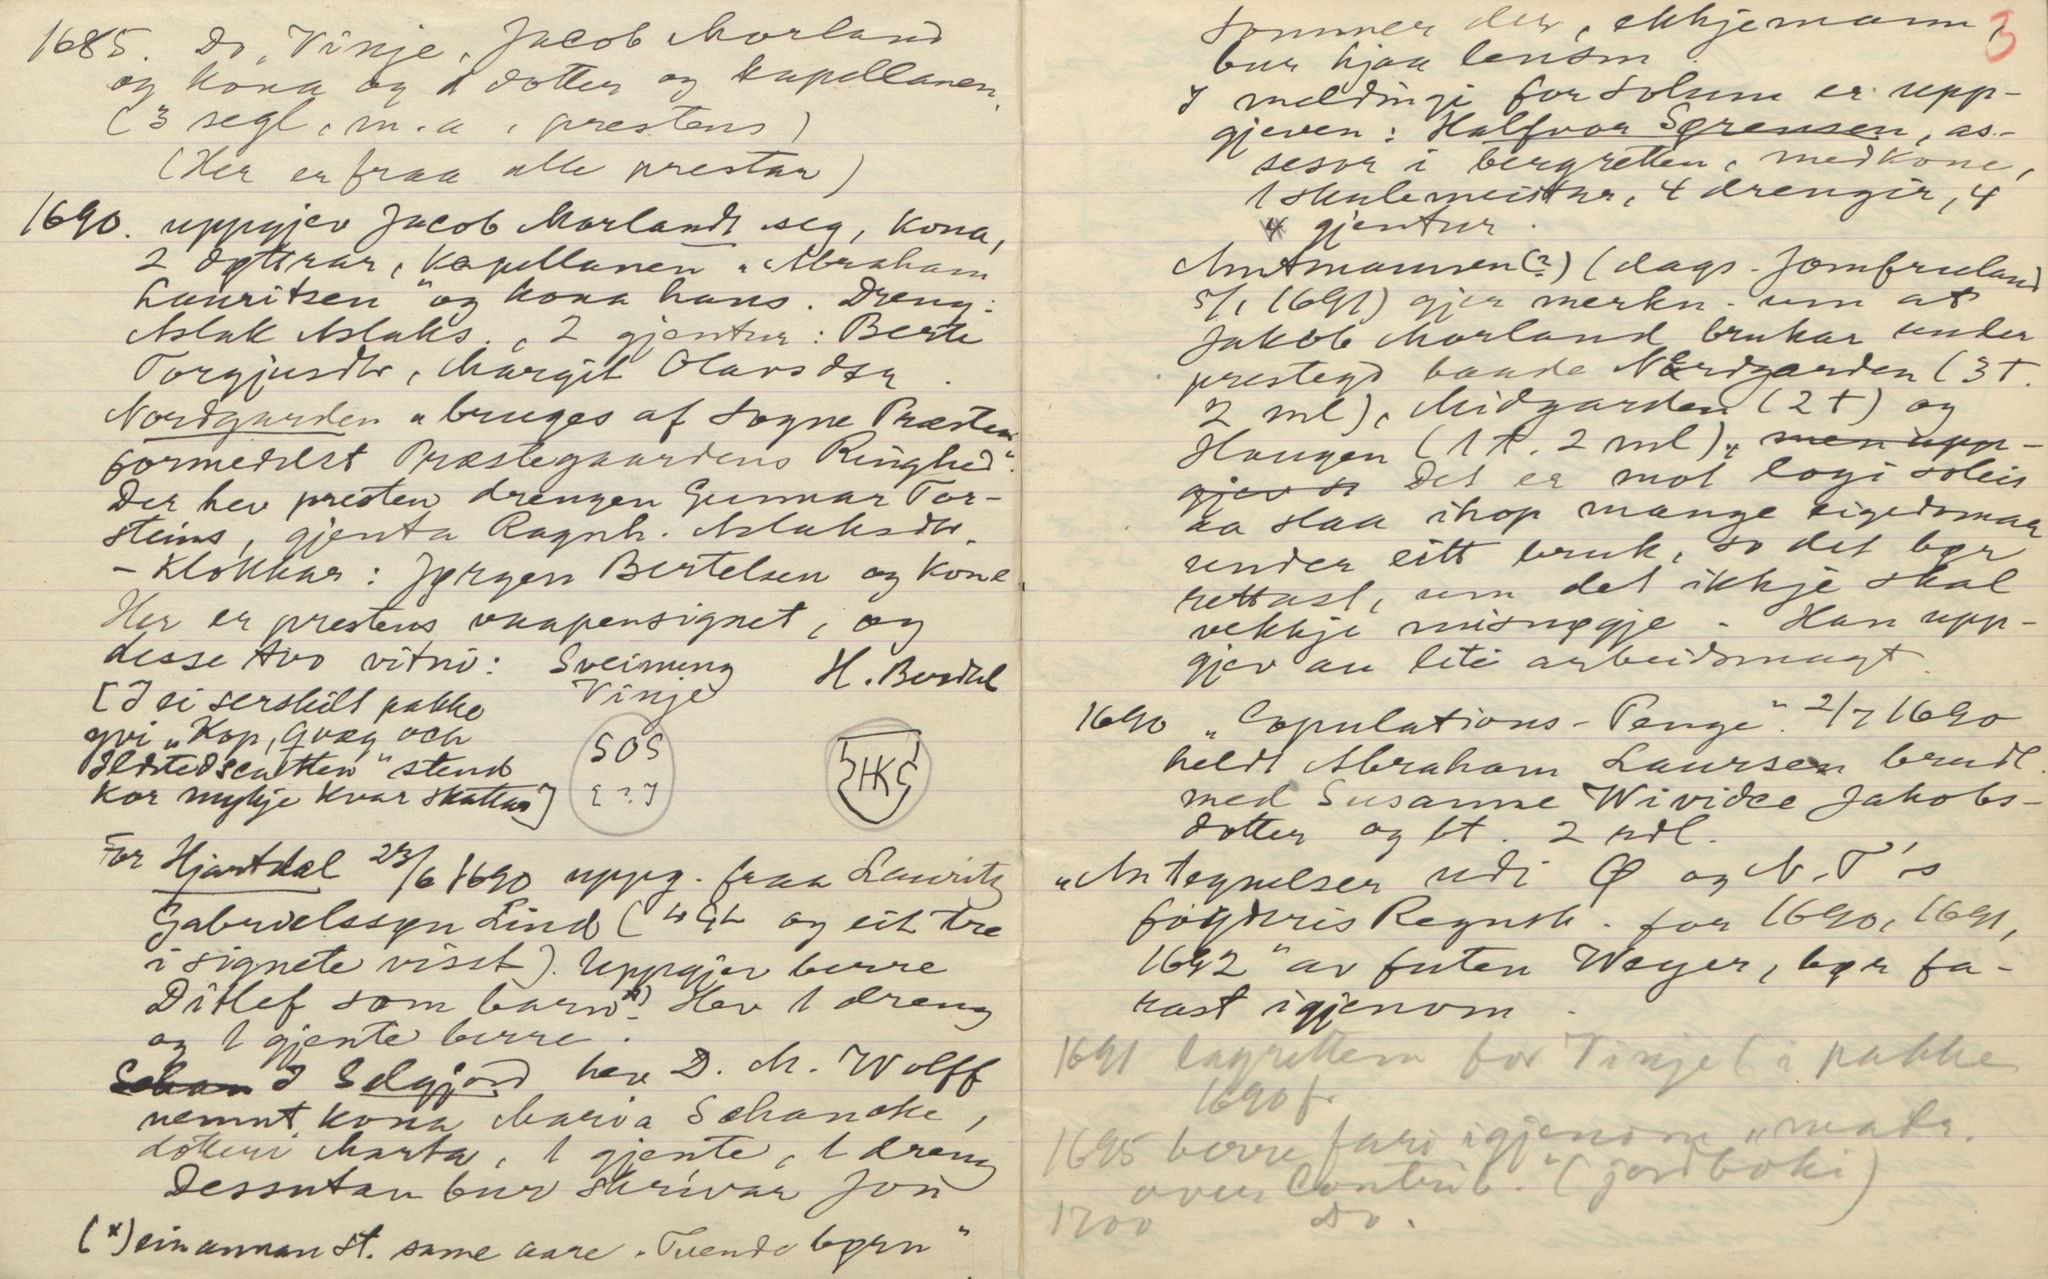 1685. Do, Vinje, Jacob Morland
og kona og 1 dotter og kapellanen.
(3 segl, m.a, prestens)
(Her er fraa alle prestar)
1690. uppgjev Jacob Morlandt seg, kona,
2 døttrar, kapellanen "Abraham
Lauritsen" og kona hans. Dreng:
Aslak Aslaks., 2 gjentur: Berte
Torgjusdtr, Margit Olavsdtr.
Nordgarden "bruges af Sogne Præsten
formedelst Præstegaardens Ringhed".
Der hev presten drengen Gunnar Tor-
steins, gjenta Ragnh. Aslaksdtr.
- Klokkar: Jørgen Bertelsen og kone.
Her er prestens vaapensignet, og
desse tvo vitni: Sveinung H. Berdal
Vinje
[I ei serskilt pakke
yvi "Kop, Qvæg och
Ildstedscatten" stend
kor mykje kvar skattar]
SOS
[?]
HK
For Hjartdal 23/6 1690 uppg. fraa Lauritz
Gabrielssøn Lind (LGL og eit tre
i signete visst). Uppgjev berre
Ditlef som barn*). Hev 1 dreng
og 1 gjente berre.
I Selgjord hev D. M. Wolff
nemnt kona Maria Schancke,
dotteri Marta, 1 gjente, 1 dreng
Dessutan bur skrivar Jon
(*) ein annan st. same aare "Tvende børn"
3
Sommer der, ekkjemann,
bur hjaa lensm.
I meldingi for Solum er upp-
gjeven: Halfvor Sørensen, as-
sesor i bergretten, med kone,
1 skulemeister, 4 drengir, 4
gjentur.
Amtmannen(?) (dags. Jomfruland
5/1 1691) gjer merkn. um at
Jakob Morland brukar under
prestegd baade Nordgarden (3 t.
2 ml), Midgarden (2 t) og
Haugen (1 t. 2 ml), men upp-
gjev Det er mot logi soleis
aa slaa ihop mange eigedomar
under eitt bruk, so det bør
rettast, um det ikkje skal
vekkje misnøgje. Han upp-
gjev au liti arbeidsmagt.
1690 "Copulations-Penge". 2/7 1690
heldt Abraham Laursen brudl.
med Susanne Wividee Jakobs-
dotter og bt. 2 rdl.
"Antegnelser udi Ø og N. T's
fogderis Regnsk. for 1690, 1691,
1692" av futen Weyer, bør fa-
rast igjenom.
1691 lagrettem for Vinje (i pakke
1690 f.
1695 berre fari igjenom "matr.
over Contrib." (jordboki)
1700 Do.